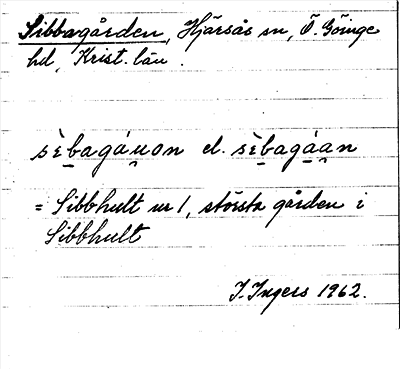 Sibbagården, Hjärsås sn, Ö. Göinge
hd, Krist. län.
sèb̲agáu̯on el. sèb̲agáa̯n
= Sibbhult nr 1, största gården i
Sibbhult
I. Ingers 1962.